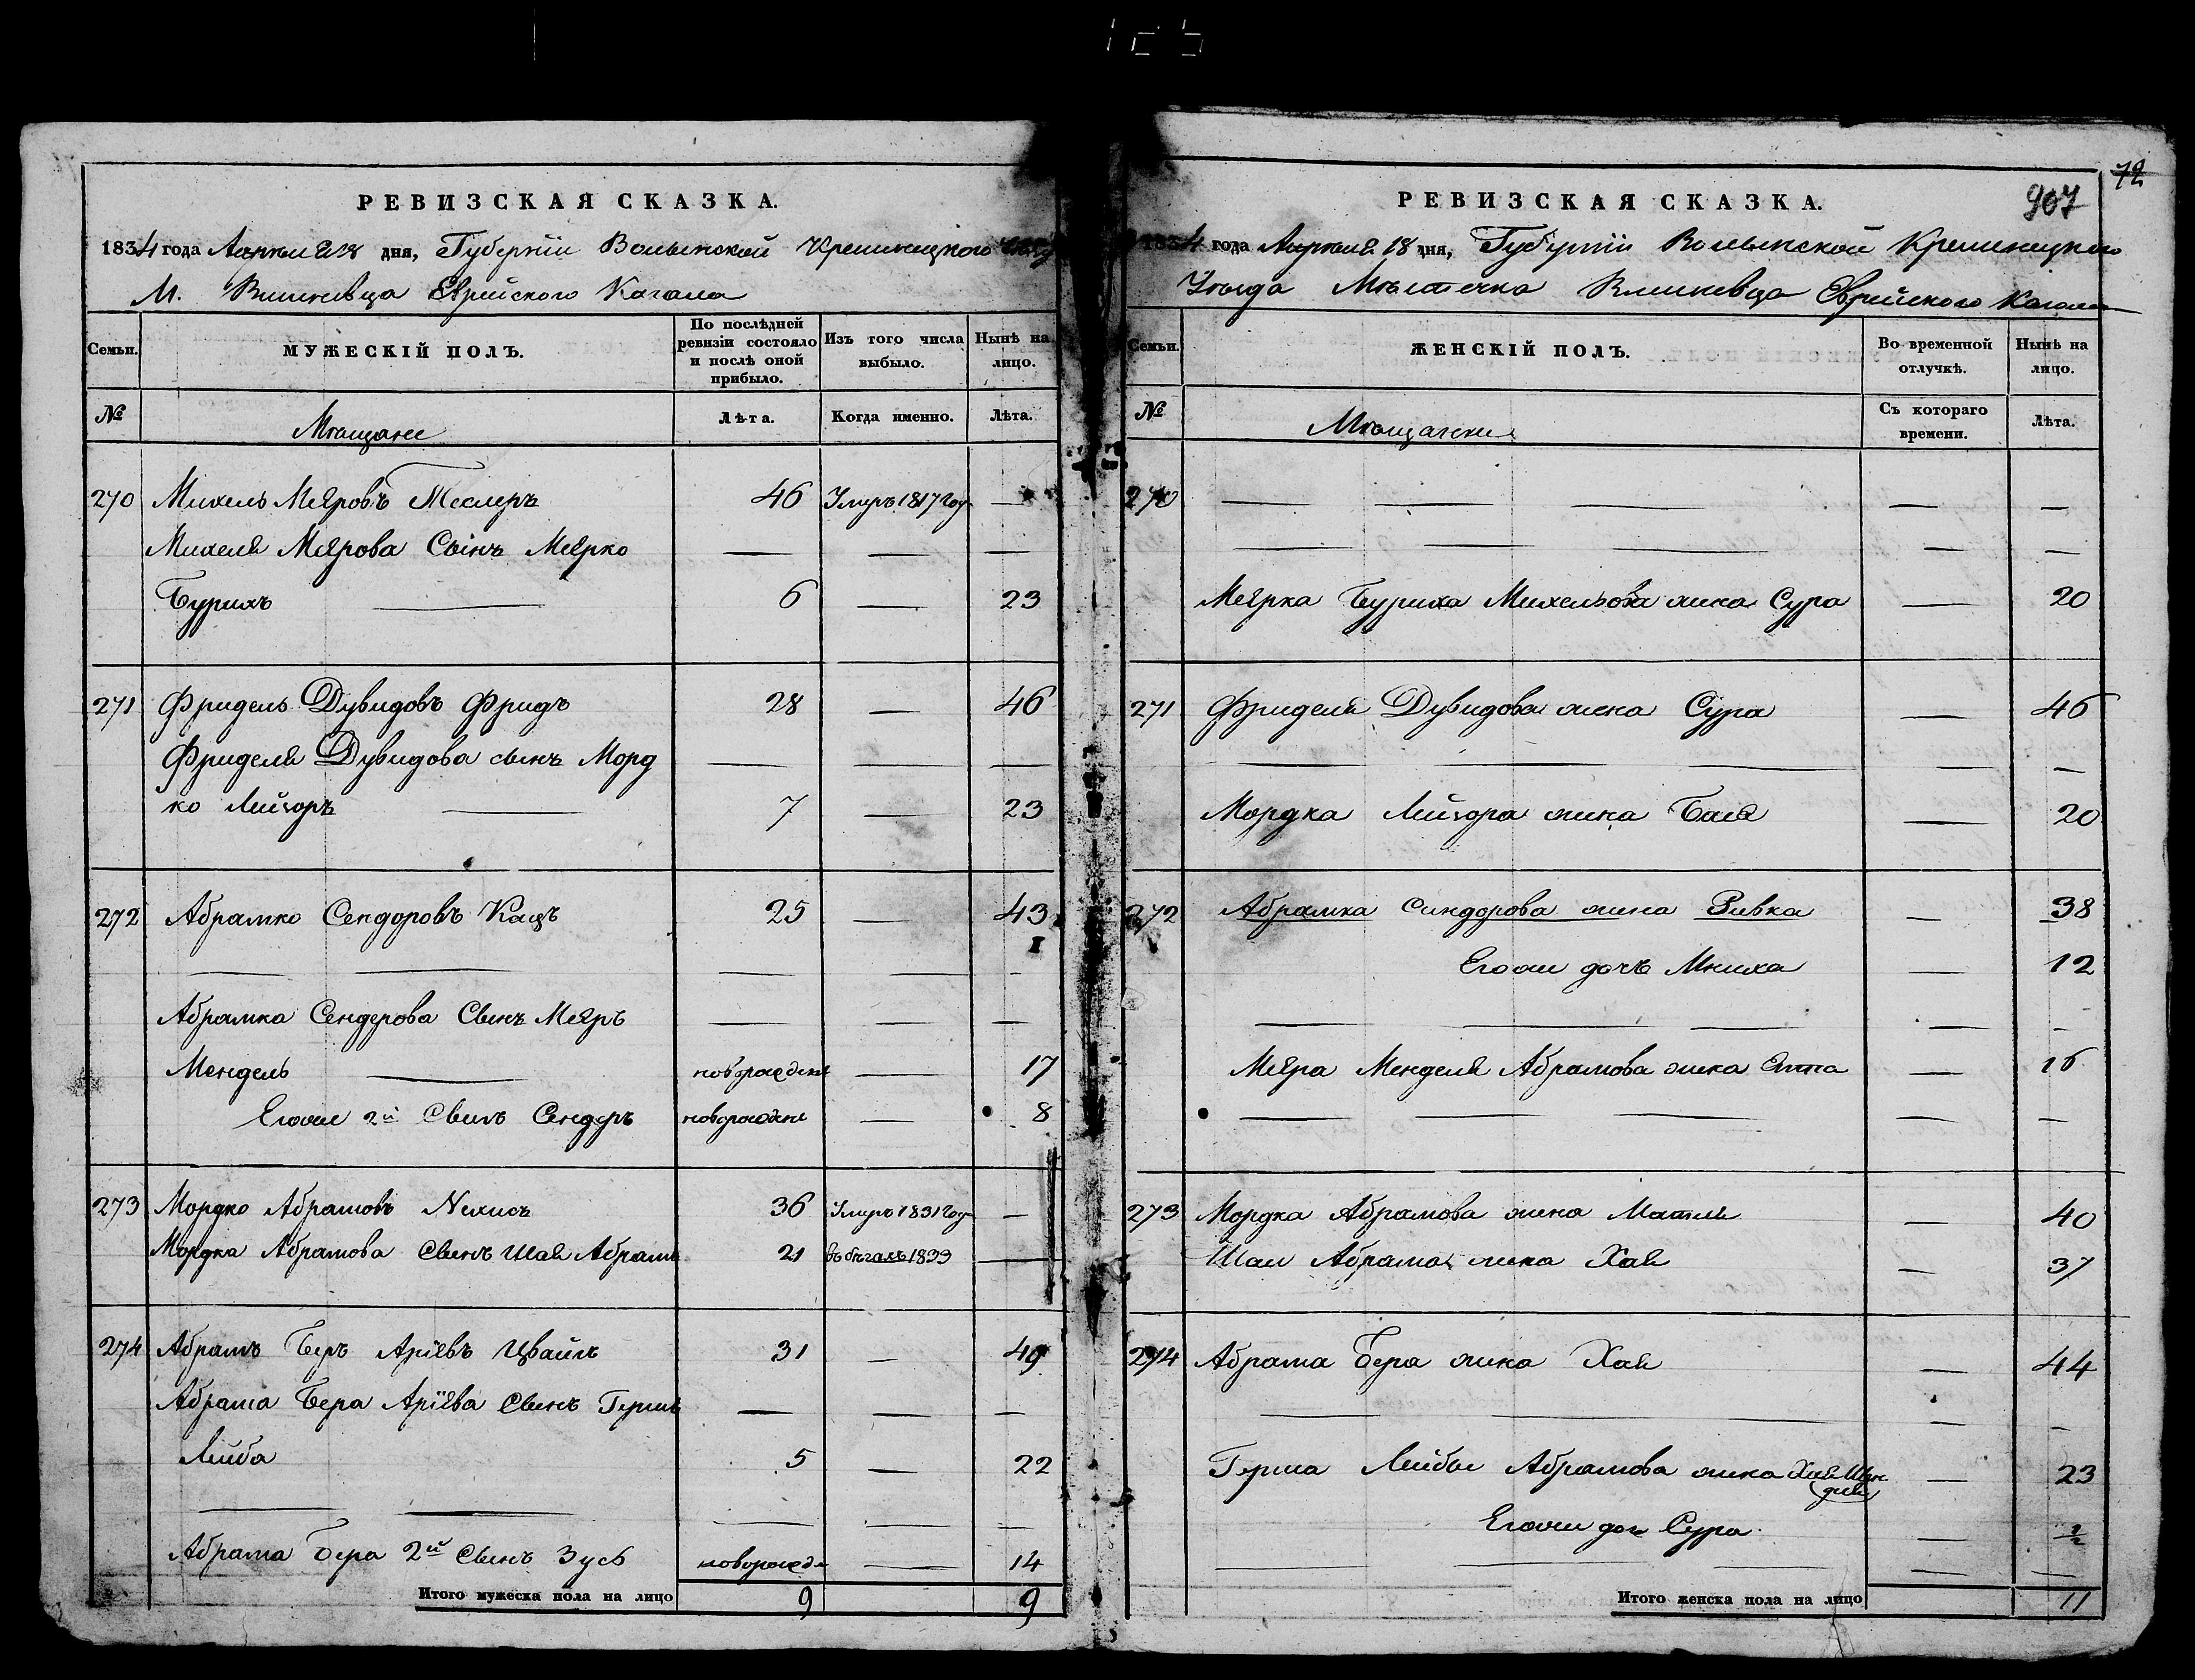 72
907
РЕВИЗСКАЯ СКАЗКА.
1834 года Апреля 18 дня, Губерніи Волынской Кременецкого
М. Вишневца Еврейского Кагала
Семьи. МУЖЕСКІЙ ПОЛЪ. По послѣдней ревизіи состояло и послѣ оной прибыло. Изъ того числа выбыло. Нынѣ на лицо.
№ Мѣщане Лѣта. Когда именно. Лѣта.
270 Михель Меяровъ Теслеръ 46 Умеръ 1817 год —
Михеля Меярова Сынъ Меярко — — —
Бурихъ — 6 — 23
271 Фридель Дувидовъ Фридъ 28 — 46
Фриделя Дувидова сынъ Морд — — —
ко Лейзоръ — 7 — 23
272 Абрамко Сендоровъ Кацъ 25 — 43
— — — — —
Абрамка Сендерова Сынъ Меяръ — — —
Мендель — новорожден — 17
Егоже 2й Сынъ Сендеръ новорожден — 8
273 Мордко Абрамовъ 36 Умеръ 1831 год —
Мордка Абрамова Сынъ Шая Абрамъ 21 въ бѣгахъ 1833 —
274 Абрамъ Беръ Аріевъ Цвайгъ 31 — 49
Абрама Бера Аріева Сынъ Гершъ — — —
Лейба 5 — 22
— — — — —
Абрама Бера 2й Сынъ Зусь новорожд — 14
Итого мужеска пола на лицо 9 9
РЕВИЗСКАЯ СКАЗКА.
1834 года Апреля 18 дня, Губерніи Волынской Кременецкого
Уѣзда Мѣстечка Вишневца Еврейского Кагала
Семьи. ЖЕНСКІЙ ПОЛЪ. Во временной отлучкѣ. Нынѣ на лицо.
№ Мѣщански Съ котораго времени. Лѣта.
270 — — — — —
— — — — —
Меярка Буриха Михельова жена Сура — 20
271 Фриделя Дувидова жена Сура — 46
— — — — —
Мордка Лейзора жена Бася — 20
272 Абрамка Сендорова жена Ривка — 38
Егоже дочь Мниха — 12
— — — — —
Меяра Менделя Абрамова жена Етта — 16
— — — — —
273 Мордка Абрамова жена Матля — 40
Шаи Абрама жена Хая — 37
274 Абрама Бера жена Хая — 44
— — — — —
Герша Лейбы Абрамова жена Хая Шен — 23
для
Егоже доч Сура — 1/2
— — — — —
Итого женска пола на лицо 11